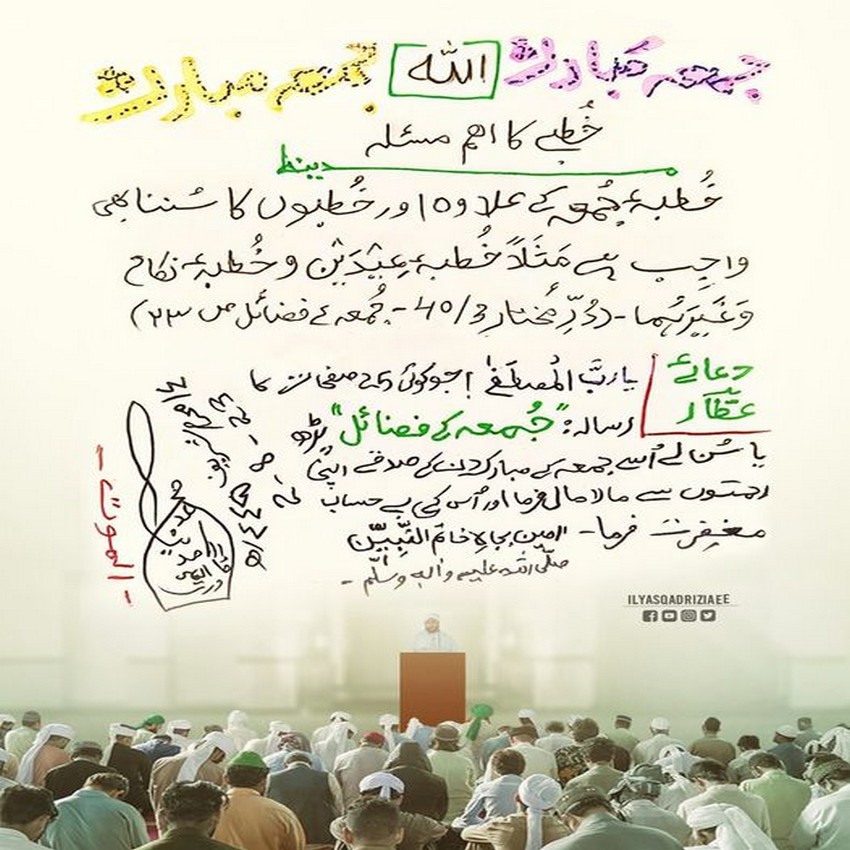 جمعہ مبارک اللہ جمعہ مبارک
خُطبے کا اہم مسئلہ
خُطبۂ جُمعہ کے علاوہ اور خُطبوں کا سُننا بھی
واجِب ہے مَثَلاً خُطبۂ عِیْدَیْن و خُطبۂ نکاح
وَغَیْرَہُما۔ (دُرِّمُختار 3/40۔ جُمعہ کے فضائل ص ۲۳)
دعائے عطّار
یا ربَّ المُصطَفٰے! جو کوئی 25 صفحات کا
رسالہ: "جُمعہ کے فضائل" پڑھ
یا سُن لے اُسے جمعہ کے مبارک دن کے صدقے اپنی
رحمتوں سے مالا مال فرما اور اُس کی بے حساب
مغفِرت فرما۔ امین بجاہِ خاتَمِ النَّبِیّٖن
صلَّی اللہ علیہ واٰلہٖ وسلَّم۔
الموت
ILYASQADRIZIAEE